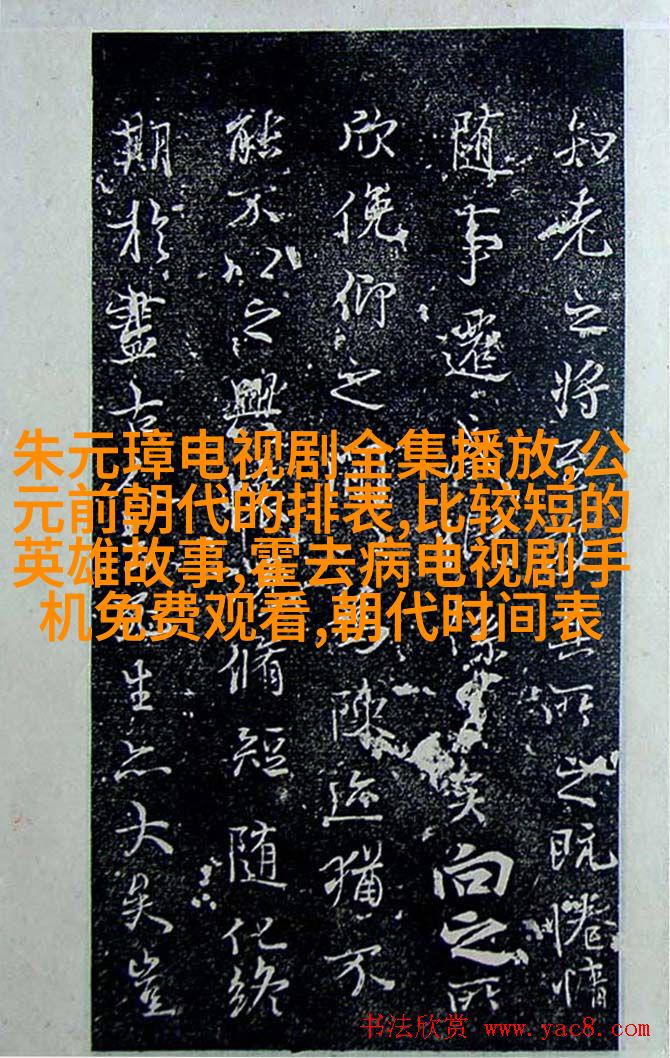 知老之将所之既惓情
随事遷矣向之所
欣俛仰之陳迹猶不
能不以之興脩短随化終
期於盡古生亦大矣豈
朱元璋电视剧全集播放,公
元前朝代的排表,比较短的
英雄故事,霍去病电视剧手
机免费观看,朝代时间表
书法欣赏 www.yac8.com